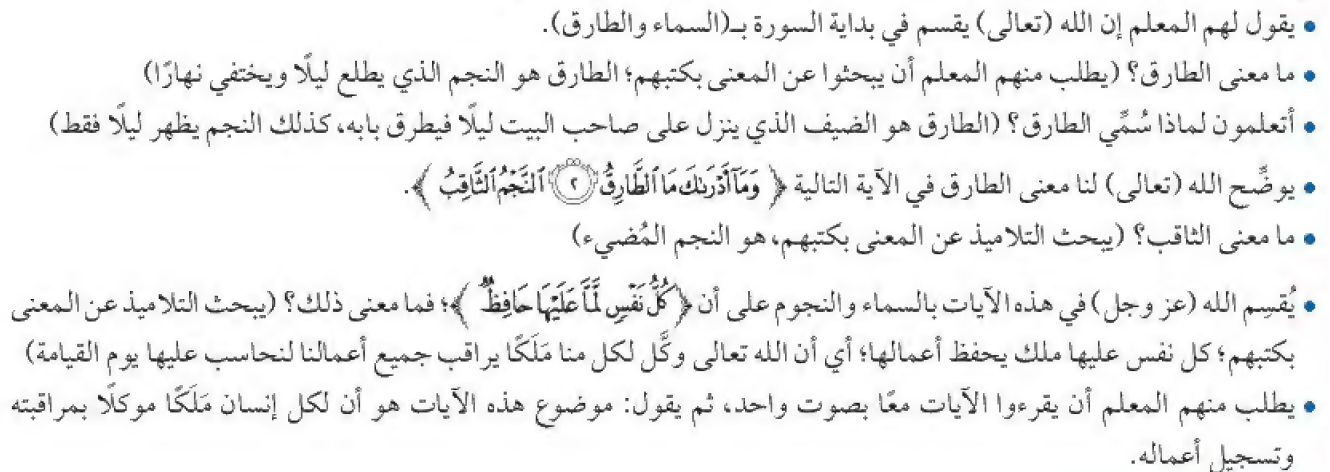 • يقول لهم المعلم إن الله (تعالى) يقسم في بداية السورة بـ(السماء والطارق).
• ما معنى الطارق؟ (يطلب منهم المعلم أن يبحثوا عن المعنى بكتبهم؛ الطارق هو النجم الذي يطلع ليلًا ويختفي نهارًا)
• أتعلمون لماذا سُمِّي الطارق؟ (الطارق هو الضيف الذي ينزل على صاحب البيت ليلًا فيطرق بابه، كذلك النجم يظهر ليلًا فقط)
• يوضِّح الله (تعالى) لنا معنى الطارق في الآية التالية ﴿ وَمَآ أَدۡرَىٰكَ مَا ٱلطَّارِقُ ٢ ٱلنَّجۡمُ ٱلثَّاقِبُ ﴾.
• ما معنى الثاقب؟ (يبحث التلاميذ عن المعنى بكتبهم، هو النجم المُضيء)
• يُقسِم الله (عز وجل) في هذه الآيات بالسماء والنجوم على أن ﴿ كُلُّ نَفۡسٖ لَّمَّا عَلَيۡهَا حَافِظٞ ﴾؛ فما معنى ذلك؟ (يبحث التلاميذ عن المعنى
بكتبهم؛ كل نفس عليها ملك يحفظ أعمالها؛ أي أن الله تعالى وكَّل لكل منا مَلَكًا يراقب جميع أعمالنا لنحاسب عليها يوم القيامة)
• يطلب منهم المعلم أن يقرءوا الآيات معًا بصوت واحد، ثم يقول: موضوع هذه الآيات هو أن لكل إنسان مَلَكًا موكلًا بمراقبته
وتسجيل أعماله.